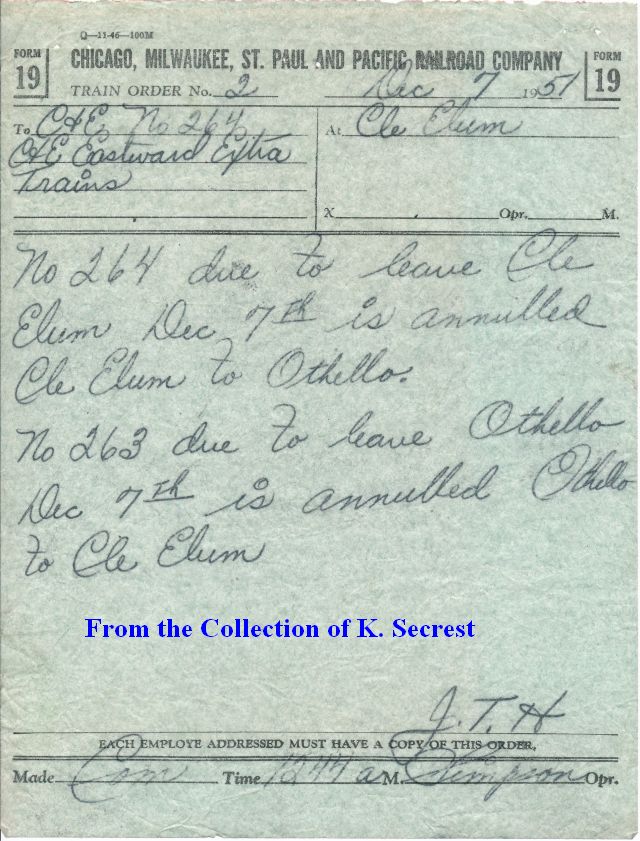 Q—11-46—100M
FORM 19
CHICAGO, MILWAUKEE, ST. PAUL AND PACIFIC RAILROAD COMPANY
FORM 19
TRAIN ORDER No. 2 Dec 7 1951
To C&E No 264
C&E Eastward Extra
Trains
At Cle Elum
X Opr. M.
No 264 due to leave Cle
Elum Dec 7th is annulled
Cle Elum to Othello.
No 263 due to leave Othello
Dec 7th is annulled Othello
to Cle Elum
From the Collection of K. Secrest
J. T. H
EACH EMPLOYE ADDRESSED MUST HAVE A COPY OF THIS ORDER.
Made Com Time a M. Opr.